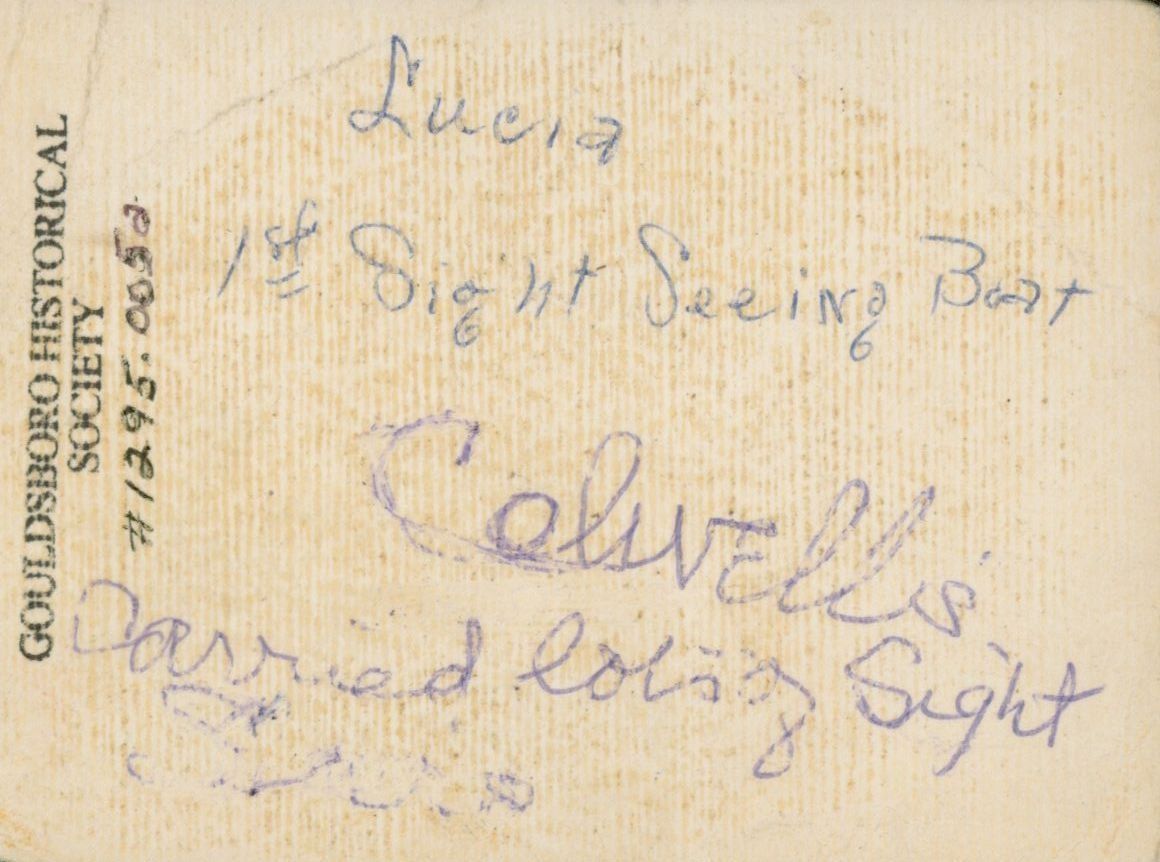 GOULDSBORO HISTORICAL
SOCIETY
#1295.005a
Lucia
1st Sight Seeing Boat
Colwell's
Carried Sight